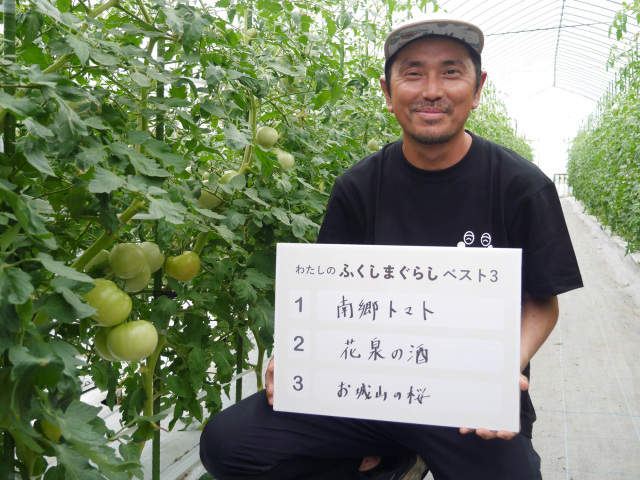 わたしの ふくしまぐらし ベスト3
1 南郷トマト
2 花泉の酒
3 お城山の桜